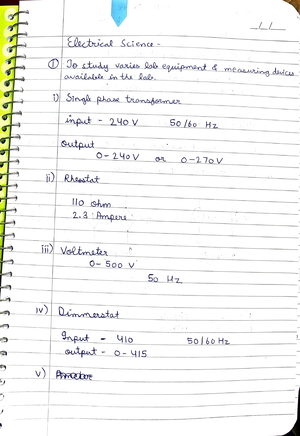 / /
Electrical Science -
① To study varies lab equipment & measuring devices
available in the lab.
i) Single phase transformer
input - 240 V 50/60 Hz
output
0-240 V or 0-270 V
ii) Rheostat
110 ohm
2.3 Ampere
iii) Voltmeter
0-500 V
50 Hz
iv) Dimmerstat
Input - 410 50/60 Hz
output - 0-415
v)